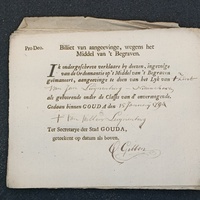 Pro Deo.
Billet van aangeevinge, wegens het
Middel van 't Begraven.
Ik ondergeschreven verklaare by deezen, ingevolge
van de Ordonnantie op 't Middel van 't Begraven
geëmaneert, aangeevinge te doen van het Lyk van
van Jan
als gehoorende onder de Classe van d' onvermogende.
Gedaan binnen GOUDA den 15 January
Ter Secretarye der Stad GOUDA,
geteekent op datum als boven.